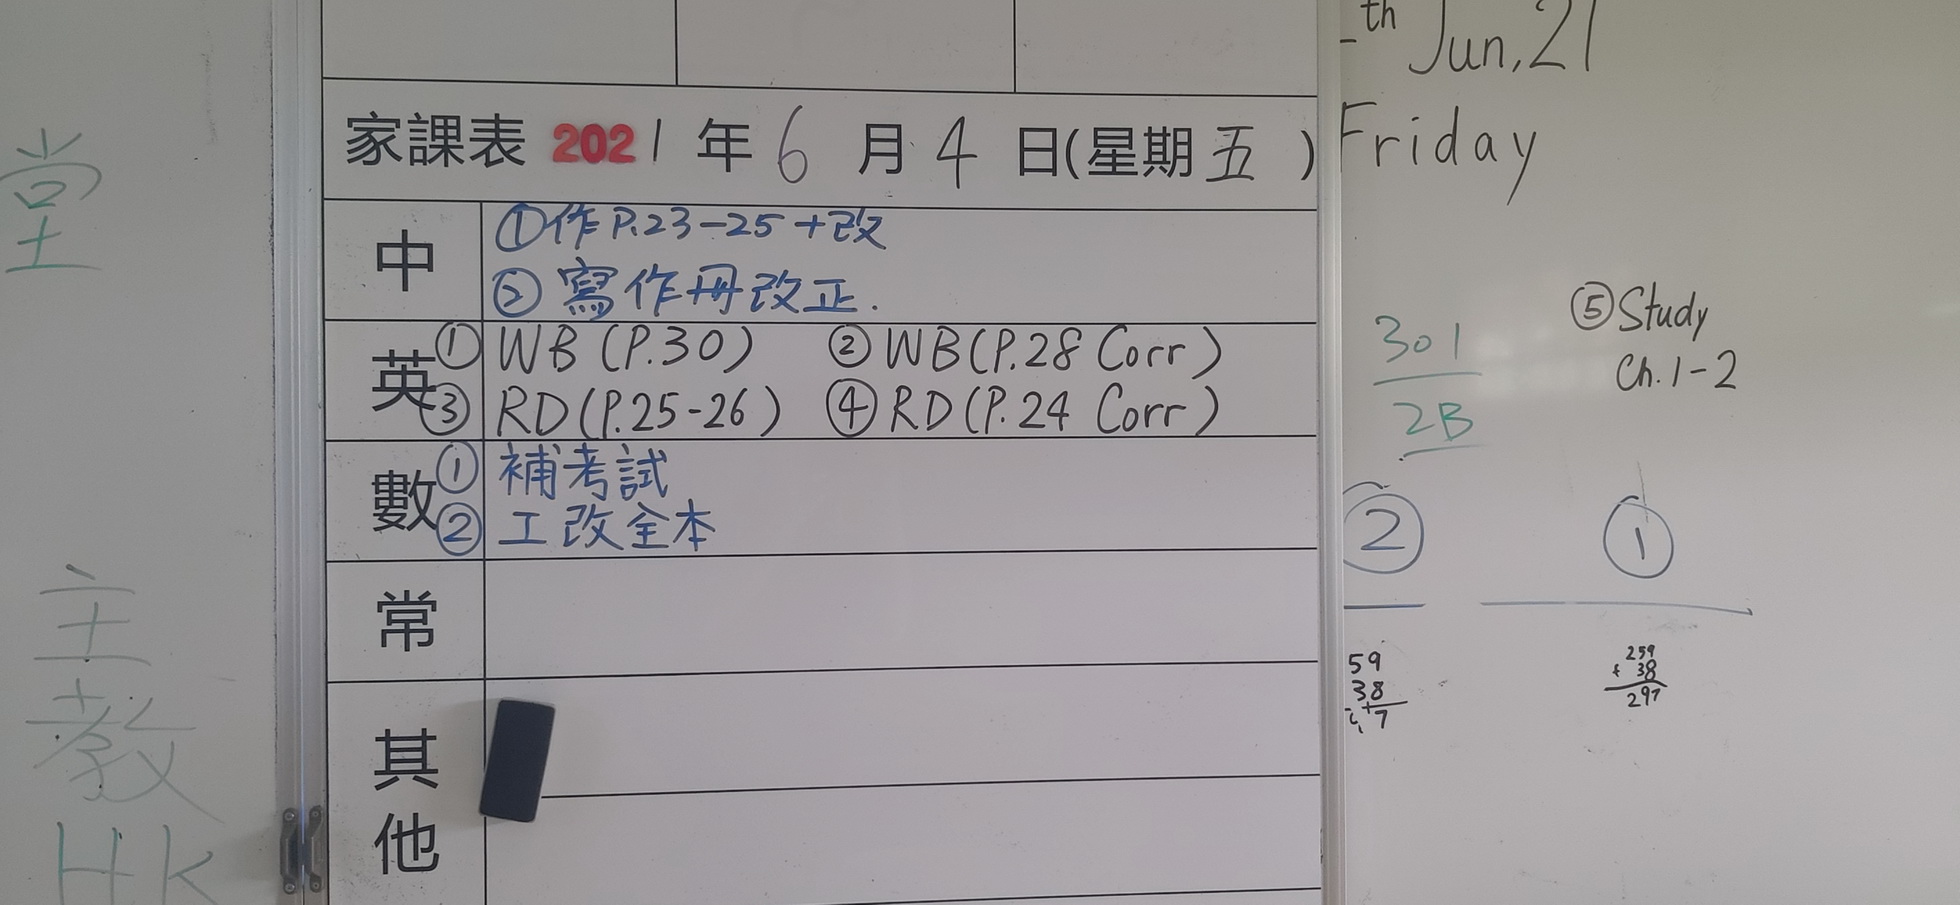 堂
主
教
HK
家課表 2021年6月4日(星期五)
中
①作P.23-25+改
②寫作冊改正.
英
①WB(P.30) ②WB(P.28 Corr)
③RD(P.25-26) ④RD(P.24 Corr)
數
①補考試
②工改全本
常
其他
th Jun,21
Friday
⑤Study
Ch.1-2
301
2B
②
①
59
38
+
7
259
+ 38
297